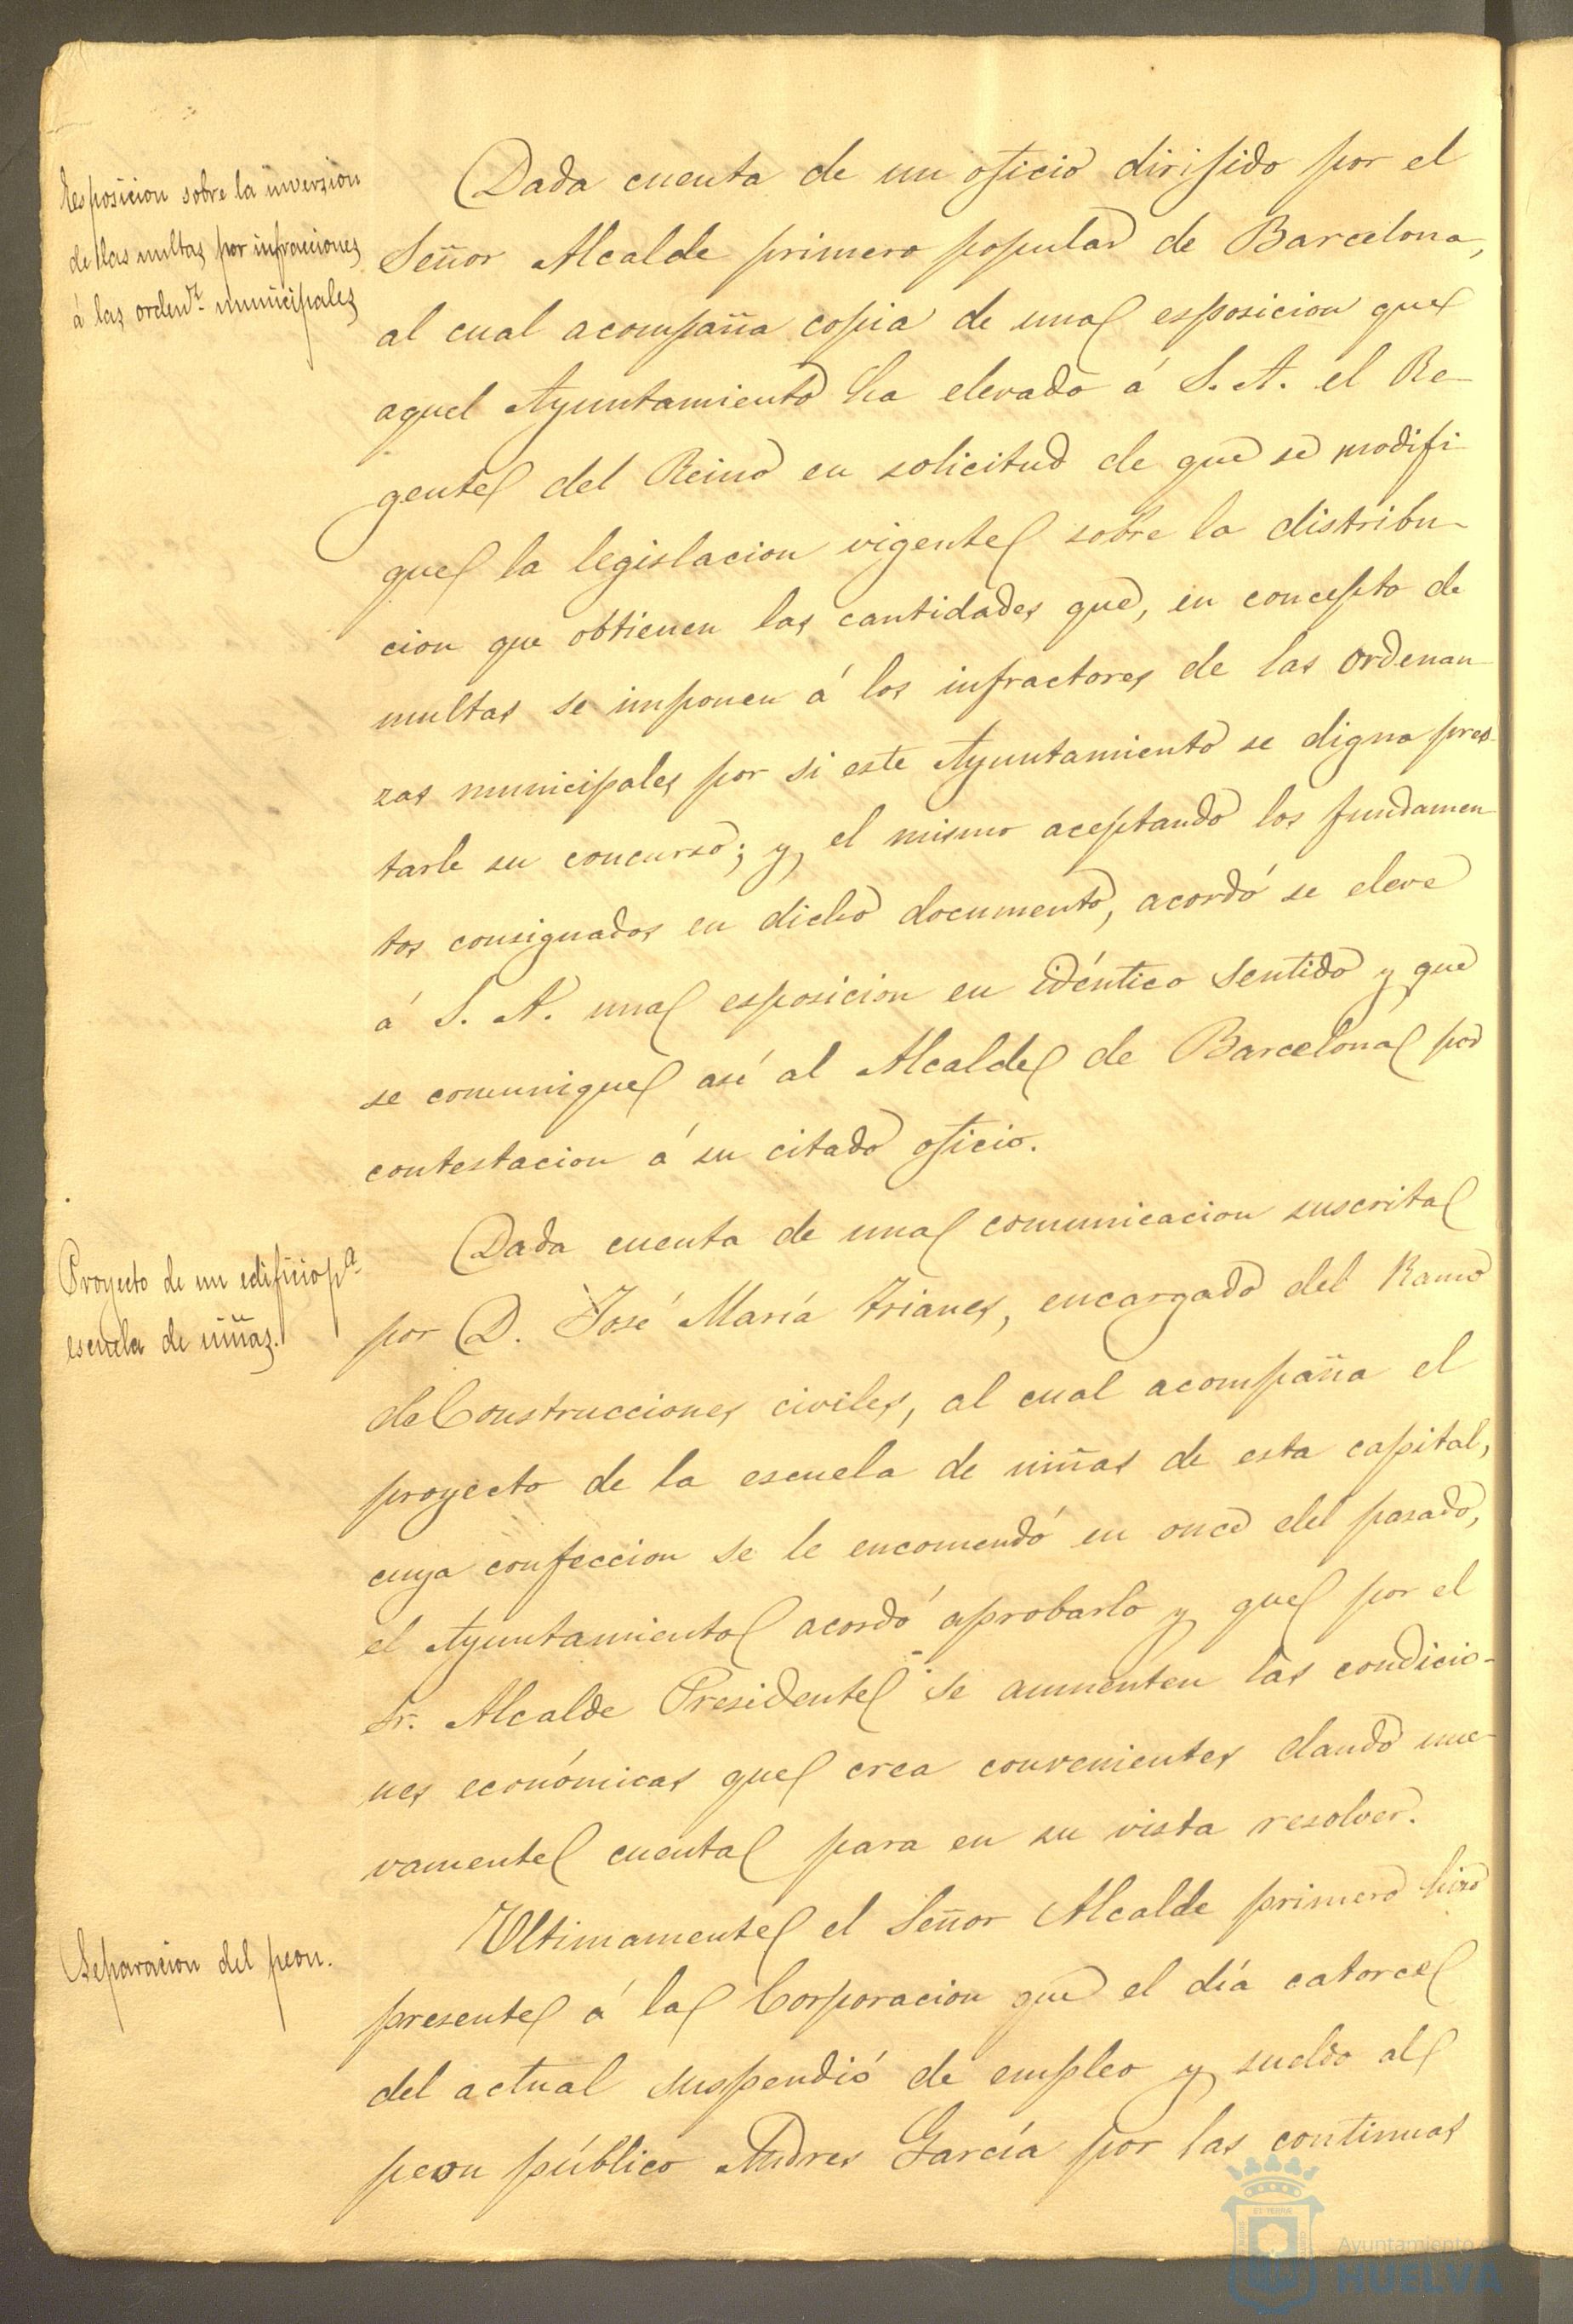 Esposicion sobre la inversion
de las multas por infracciones
á las orden.s municipales
Dada cuenta de un oficio dirijido por el
Señor Alcalde primero popular de Barcelona,
al cual acompaña copia de una esposicion que
aquel Ayuntamiento ha elevado á S. A. el Re-
gente del Reino en solicitud de que se modifi-
que la legislacion vigente sobre la distribu-
cion que obtienen las cantidades que, en concepto de
multas se imponen á los infractores de las ordenan-
zas municipales por si este Ayuntamiento se digna pres-
tarle su concurso; y el mismo aceptando los fundamen-
tos consignados en dicho documento, acordó se eleve
á S. A. una esposicion en idéntico sentido y que
se comunique así al Alcalde de Barcelona por
contestacion á su citado oficio.
Proyecto de un edificio p.a
escuela de niñas.
Dada cuenta de una comunicacion suscrita
por D. José María Trianes, encargado del Ramo
de Construcciones civiles, al cual acompaña el
proyecto de la escuela de niñas de esta capital,
cuya confeccion se le encomendó en once del pasado,
el Ayuntamiento acordó aprobarlo y que por el
Sr. Alcalde Presidente se aumenten las condicio-
nes económicas que crea convenientes dando nue-
vamente cuenta para en su vista resolver.
Separacion del peon.
Ultimamente el Señor Alcalde primero hizo
presente á la Corporacion que el día catorce
del actual suspendió de empleo y sueldo al
peon público Andres García por las continuas
Ayuntamiento
HUELVA